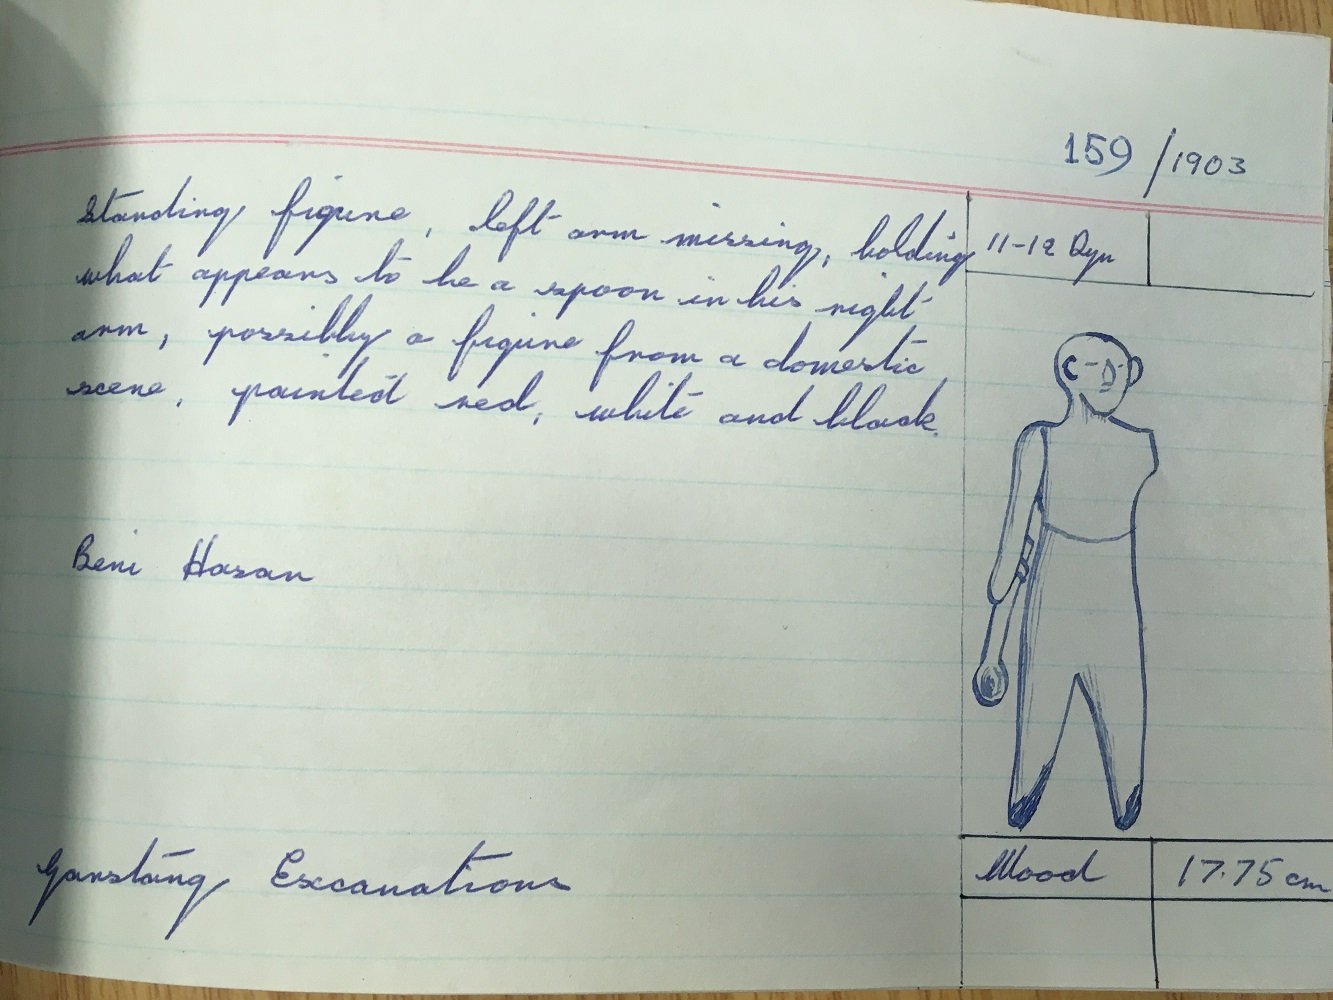 159 / 1903
Standing figure, left arm missing, holding
what appears to be a spoon in his right
arm, possibly a figure from a domestic
scene, painted red, white and black.
11-12 Dyn
Beni Hasan
Garstang Excavations
Wood
17.75 cm